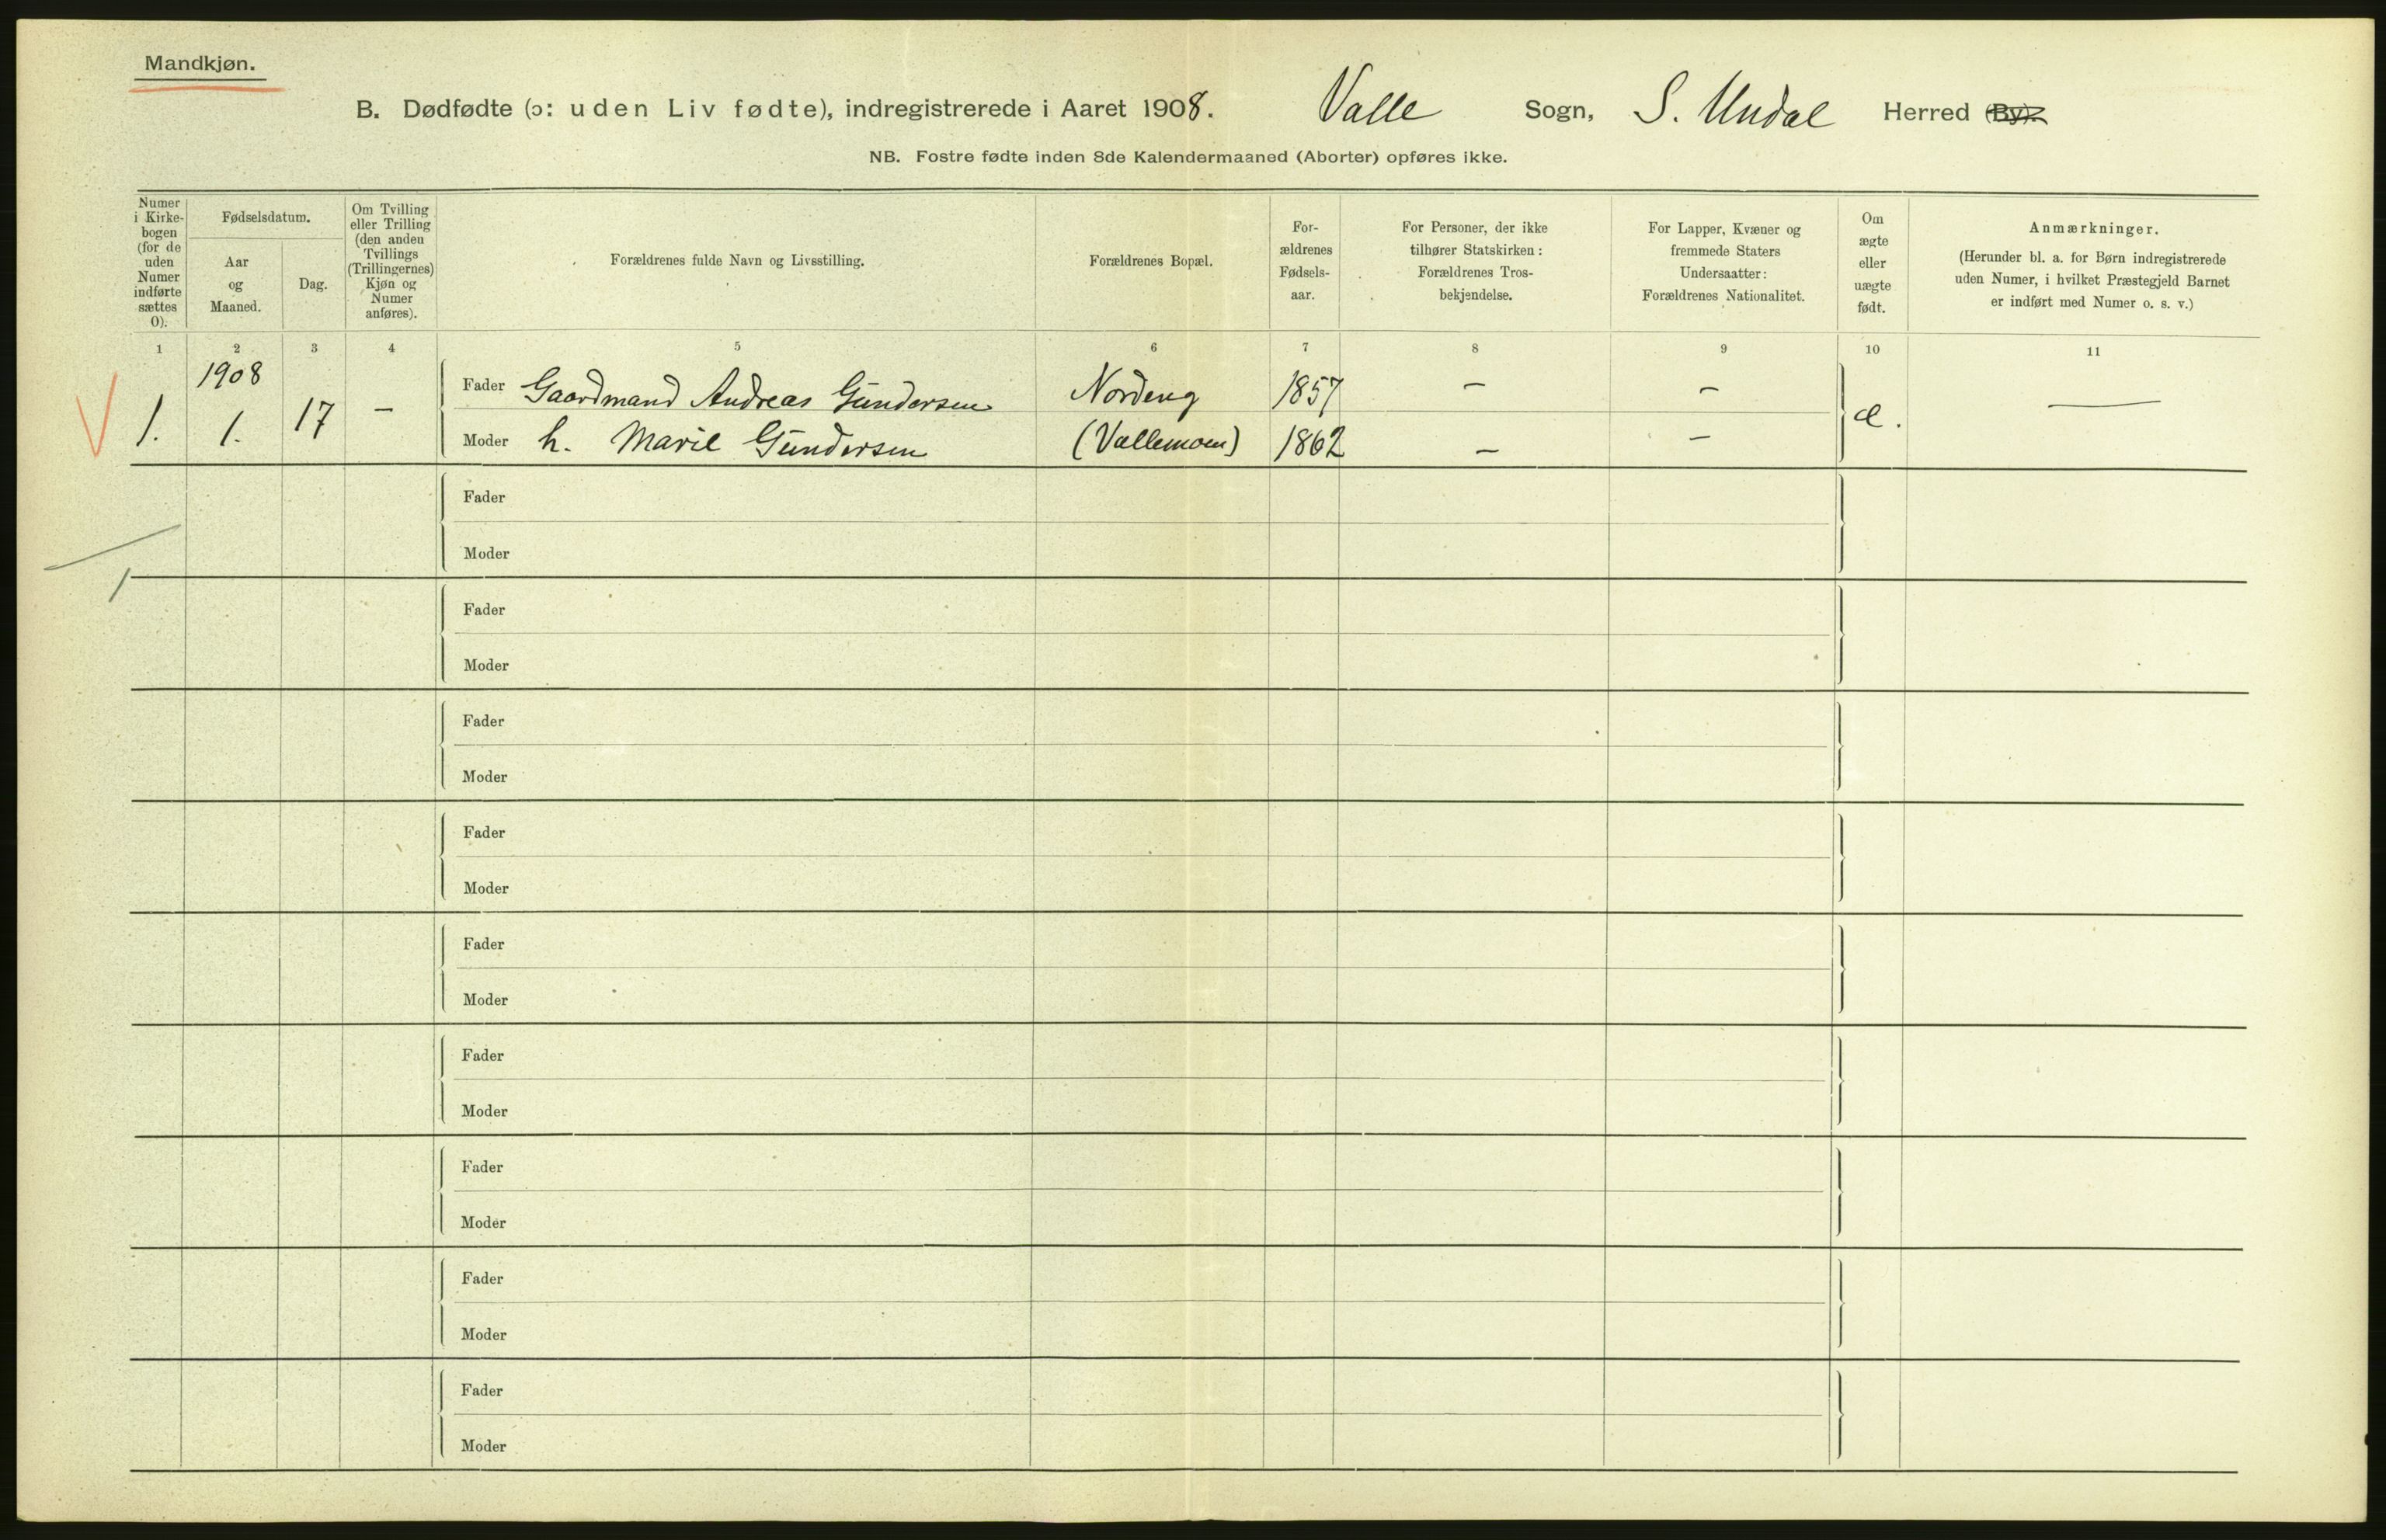 Mandkjøn.
B. Dødfødte (ɔ: uden Liv fødte), indregistrerede i Aaret 1908. Valle Sogn, S. Undal Herred (By).
NB. Fostre fødte inden 8de Kalendermaaned (Aborter) opføres ikke.
Numer i Kirkebogen (for de uden Numer indførte sættes 0).
Fødselsdatum.
Aar og Maaned.
Dag.
Om Tvilling eller Trilling (den anden Tvillings (Trillingernes) Kjøn og Numer anføres).
Forældrenes fulde Navn og Livsstilling.
Forældrenes Bopæl.
For-ældrenes Fødsels-aar.
For Personer, der ikke tilhører Statskirken: Forældrenes Tros-bekjendelse.
For Lapper, Kvæner og fremmede Staters Undersaatter: Forældrenes Nationalitet.
Om ægte eller uægte født.
Anmærkninger.
(Herunder bl. a. for Børn indregistrerede uden Numer, i hvilket Præstegjeld Barnet er indført med Numer o. s. v.)
1 2 3 4 5 6 7 8 9 10 11
1908
V 1. 1. 17 –
Fader Gaardmand Andreas Gundersen Nordeng 1857 – –
Moder h. Marie Gundersen (Vallemoen) 1862 – –
æ. —
Fader
Moder
Fader
Moder
Fader
Moder
Fader
Moder
Fader
Moder
Fader
Moder
Fader
Moder
Fader
Moder
Fader
Moder